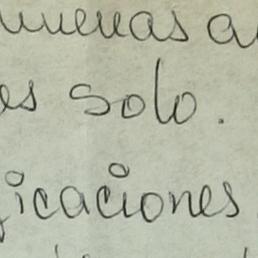 nuevas a
es solo.
icaciones